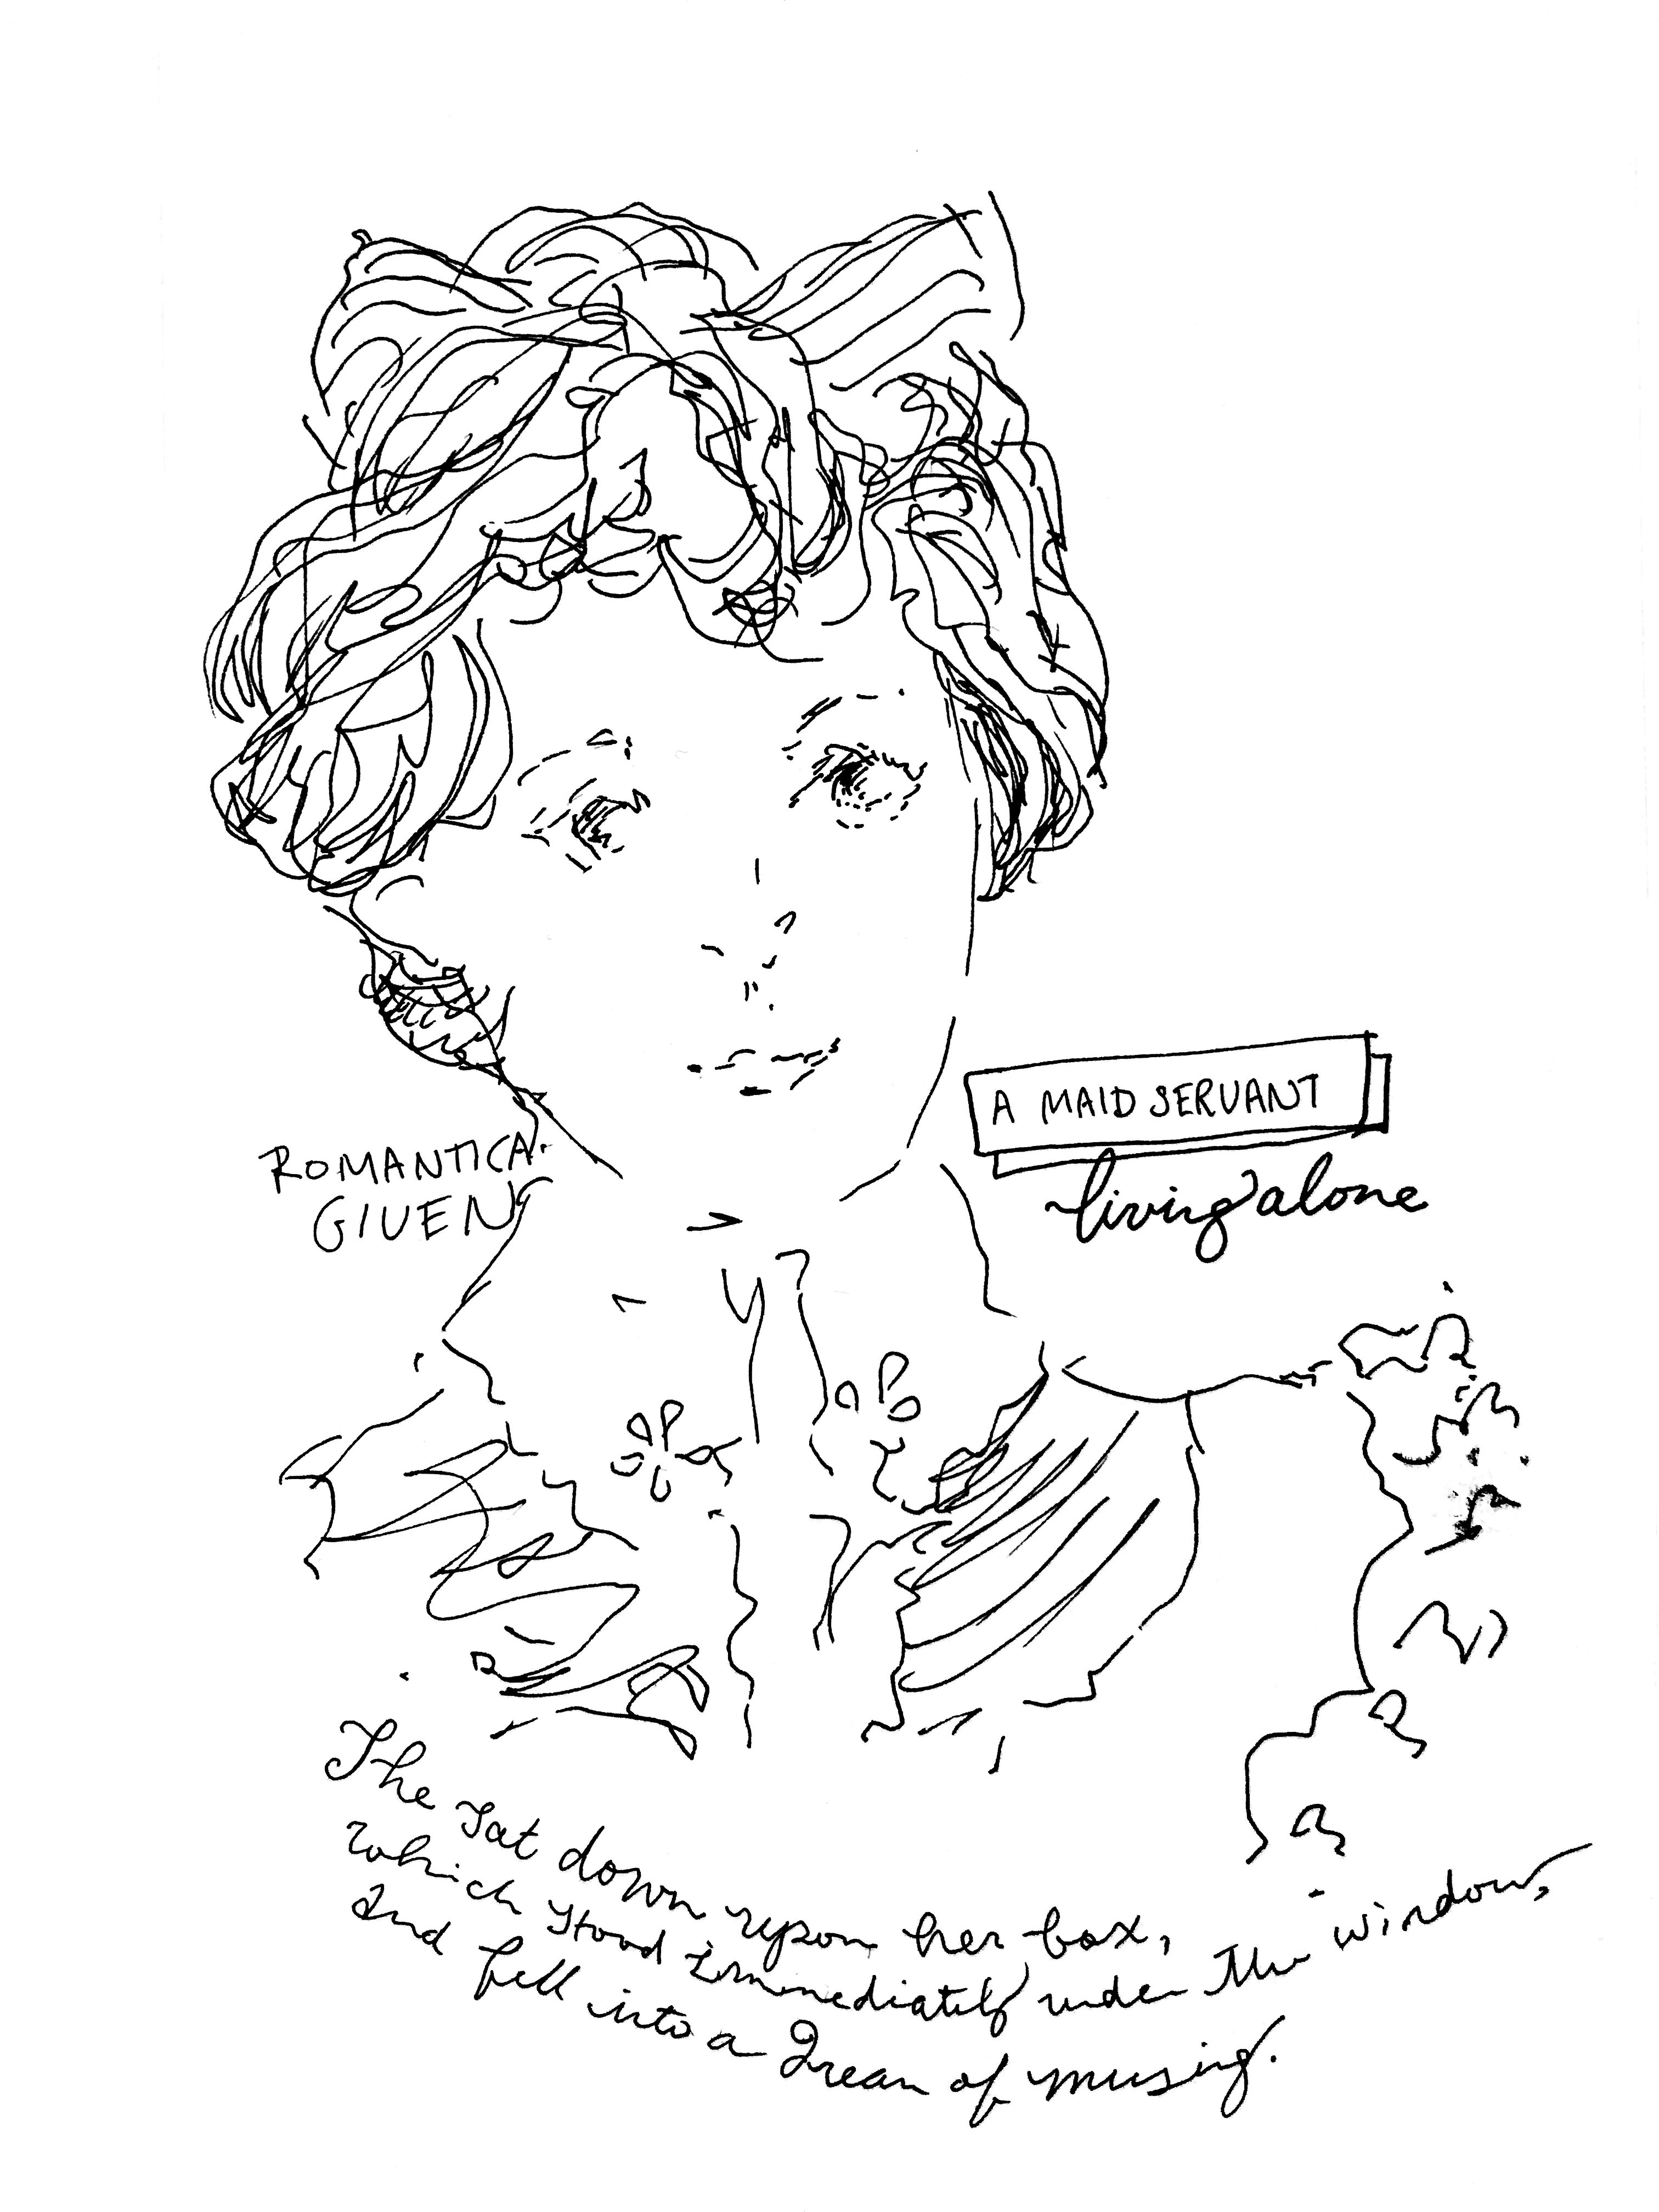 A MAID SERVANT
living alone
ROMANTICA
GIVEN
She sat down upon her box,
which stood immediately under the window,
and fell into a dream of musing.